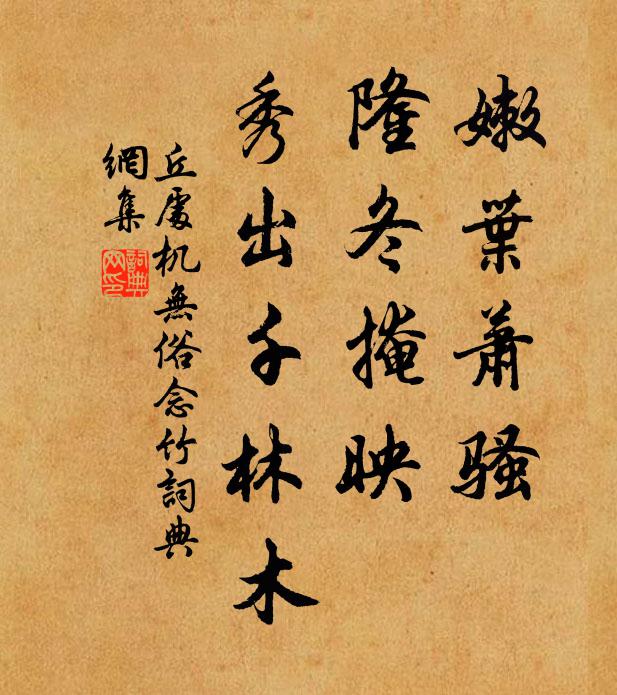 嫩葉萧骚
隆冬掩映
秀出千林木
丘處机無俗念竹詞典
網集
詞典
网印